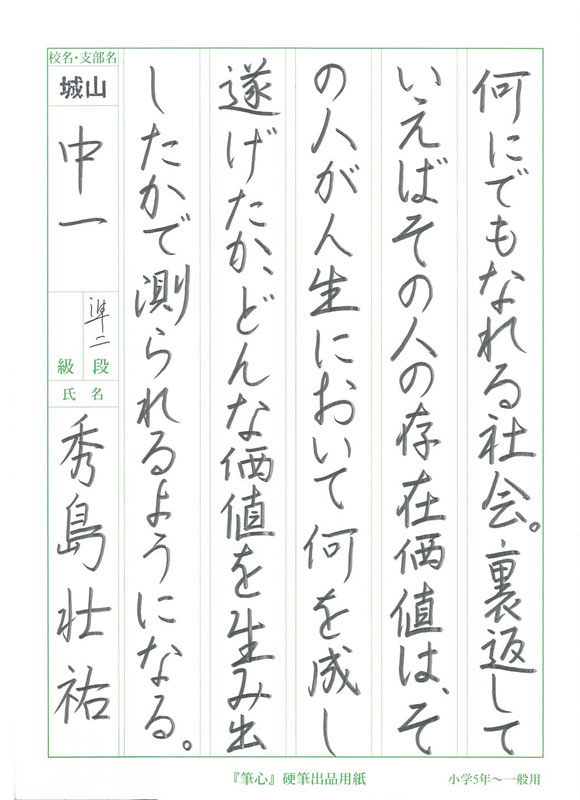 何にでもなれる社会。裏返して
いえばその人の存在価値は、そ
の人が人生において何を成し
遂げたか、どんな価値を生み出
したかで測られるようになる。
校名・支部名
城山
中一
準二
級 段
氏 名
秀島壮祐
『筆心』硬筆出品用紙
小学5年～一般用